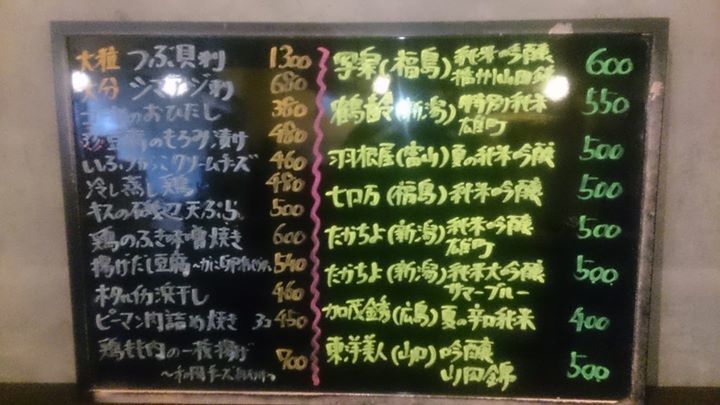 大粒 つぶ貝刺 1300
大分 シマアジ刺 680
のおひたし 380
豆腐のもろみ漬け 480
いぶりがっこクリームチーズ 460
冷し蒸し鶏 480
キスの磯辺天ぷら 500
鶏のふき味噌焼き 600
揚げだし豆腐 540
ホタルイカ浜干し 460
ピーマン肉詰め焼き 3コ 450
鶏もも肉の一枚揚げ 700
写楽(福島) 純米吟醸 600
播州山田錦
鶴齢(新潟) 特別純米 550
雄町
羽根屋(富山) 夏の純米吟醸 500
七ロ万(福島) 純米吟醸 500
たかちよ(新潟) 純米吟醸 500
雄町
たかちよ(新潟) 純米大吟醸 500
サマーブルー
加茂錦(広島) 夏の辛口純米 400
東洋美人(山口) 吟醸 500
山田錦